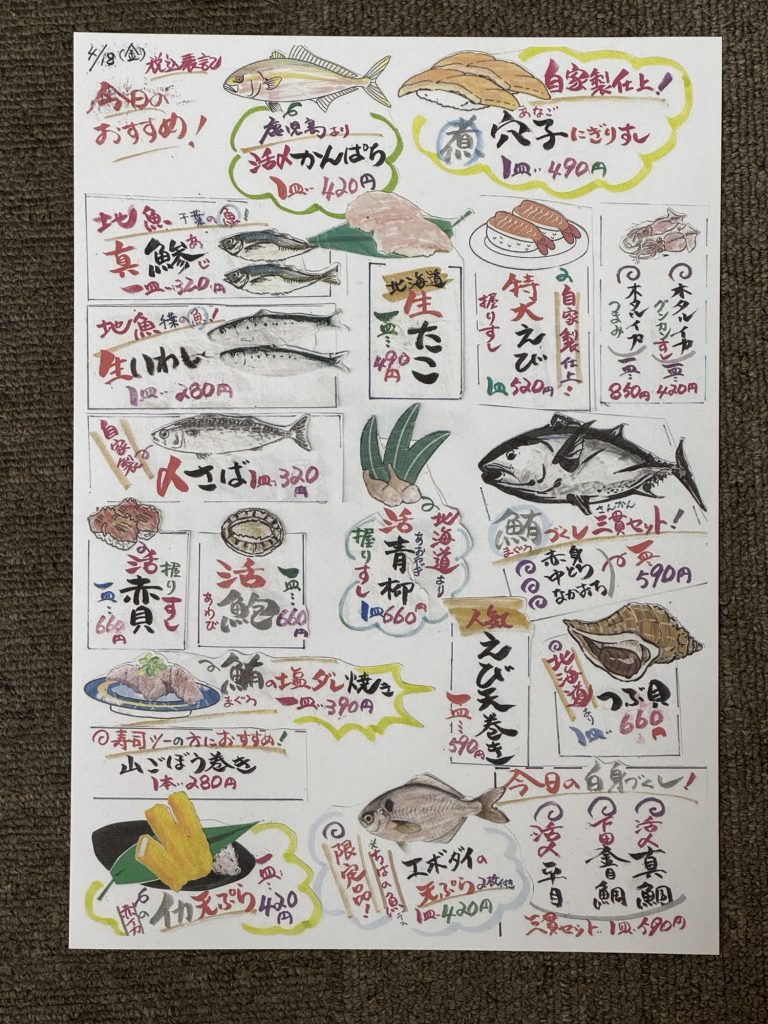 4/18(金)
税込表記
今日の
おすすめ!
鹿児島より
活〆かんぱち
1皿‥420円
自家製仕上!
あなご
煮穴子にぎりすし
1皿‥490円
地魚 千葉の魚!
真鯵
あじ
一皿‥320円
北海道
生たこ
一皿‥490円
特大えび
握りすし
自家製仕上!
1皿520円
ホタルイカ
グンカンすし
一皿‥420円
ホタルイカ
つまみ
一皿‥850円
地魚 千葉の魚!
生いわし
1皿‥280円
自家製
〆さば 1皿‥320円
北海道より
活青柳
あおやぎ
握りすし
1皿660円
鮪づくし三貫セット!
まぐろ
さんかん
赤身
中とろ
なかおち
一皿‥590円
活赤貝
握りすし
一皿‥660円
活鮑
あわび
一皿‥660円
人気
えび天巻き
一皿‥590円
北海道より
つぶ貝
1皿‥660円
鮪の塩ダレ焼き
まぐろ
一皿‥390円
寿司ツーの方におすすめ!
山ごぼう巻き
1本‥280円
イカ天ぷら
一皿‥420円
限定品!
ちばの魚
エボダイの
天ぷら 2枚付き
1皿‥420円
今日の白身づくし!
活〆真鯛
下田金目鯛
活〆平目
三貫セット‥1皿‥590円